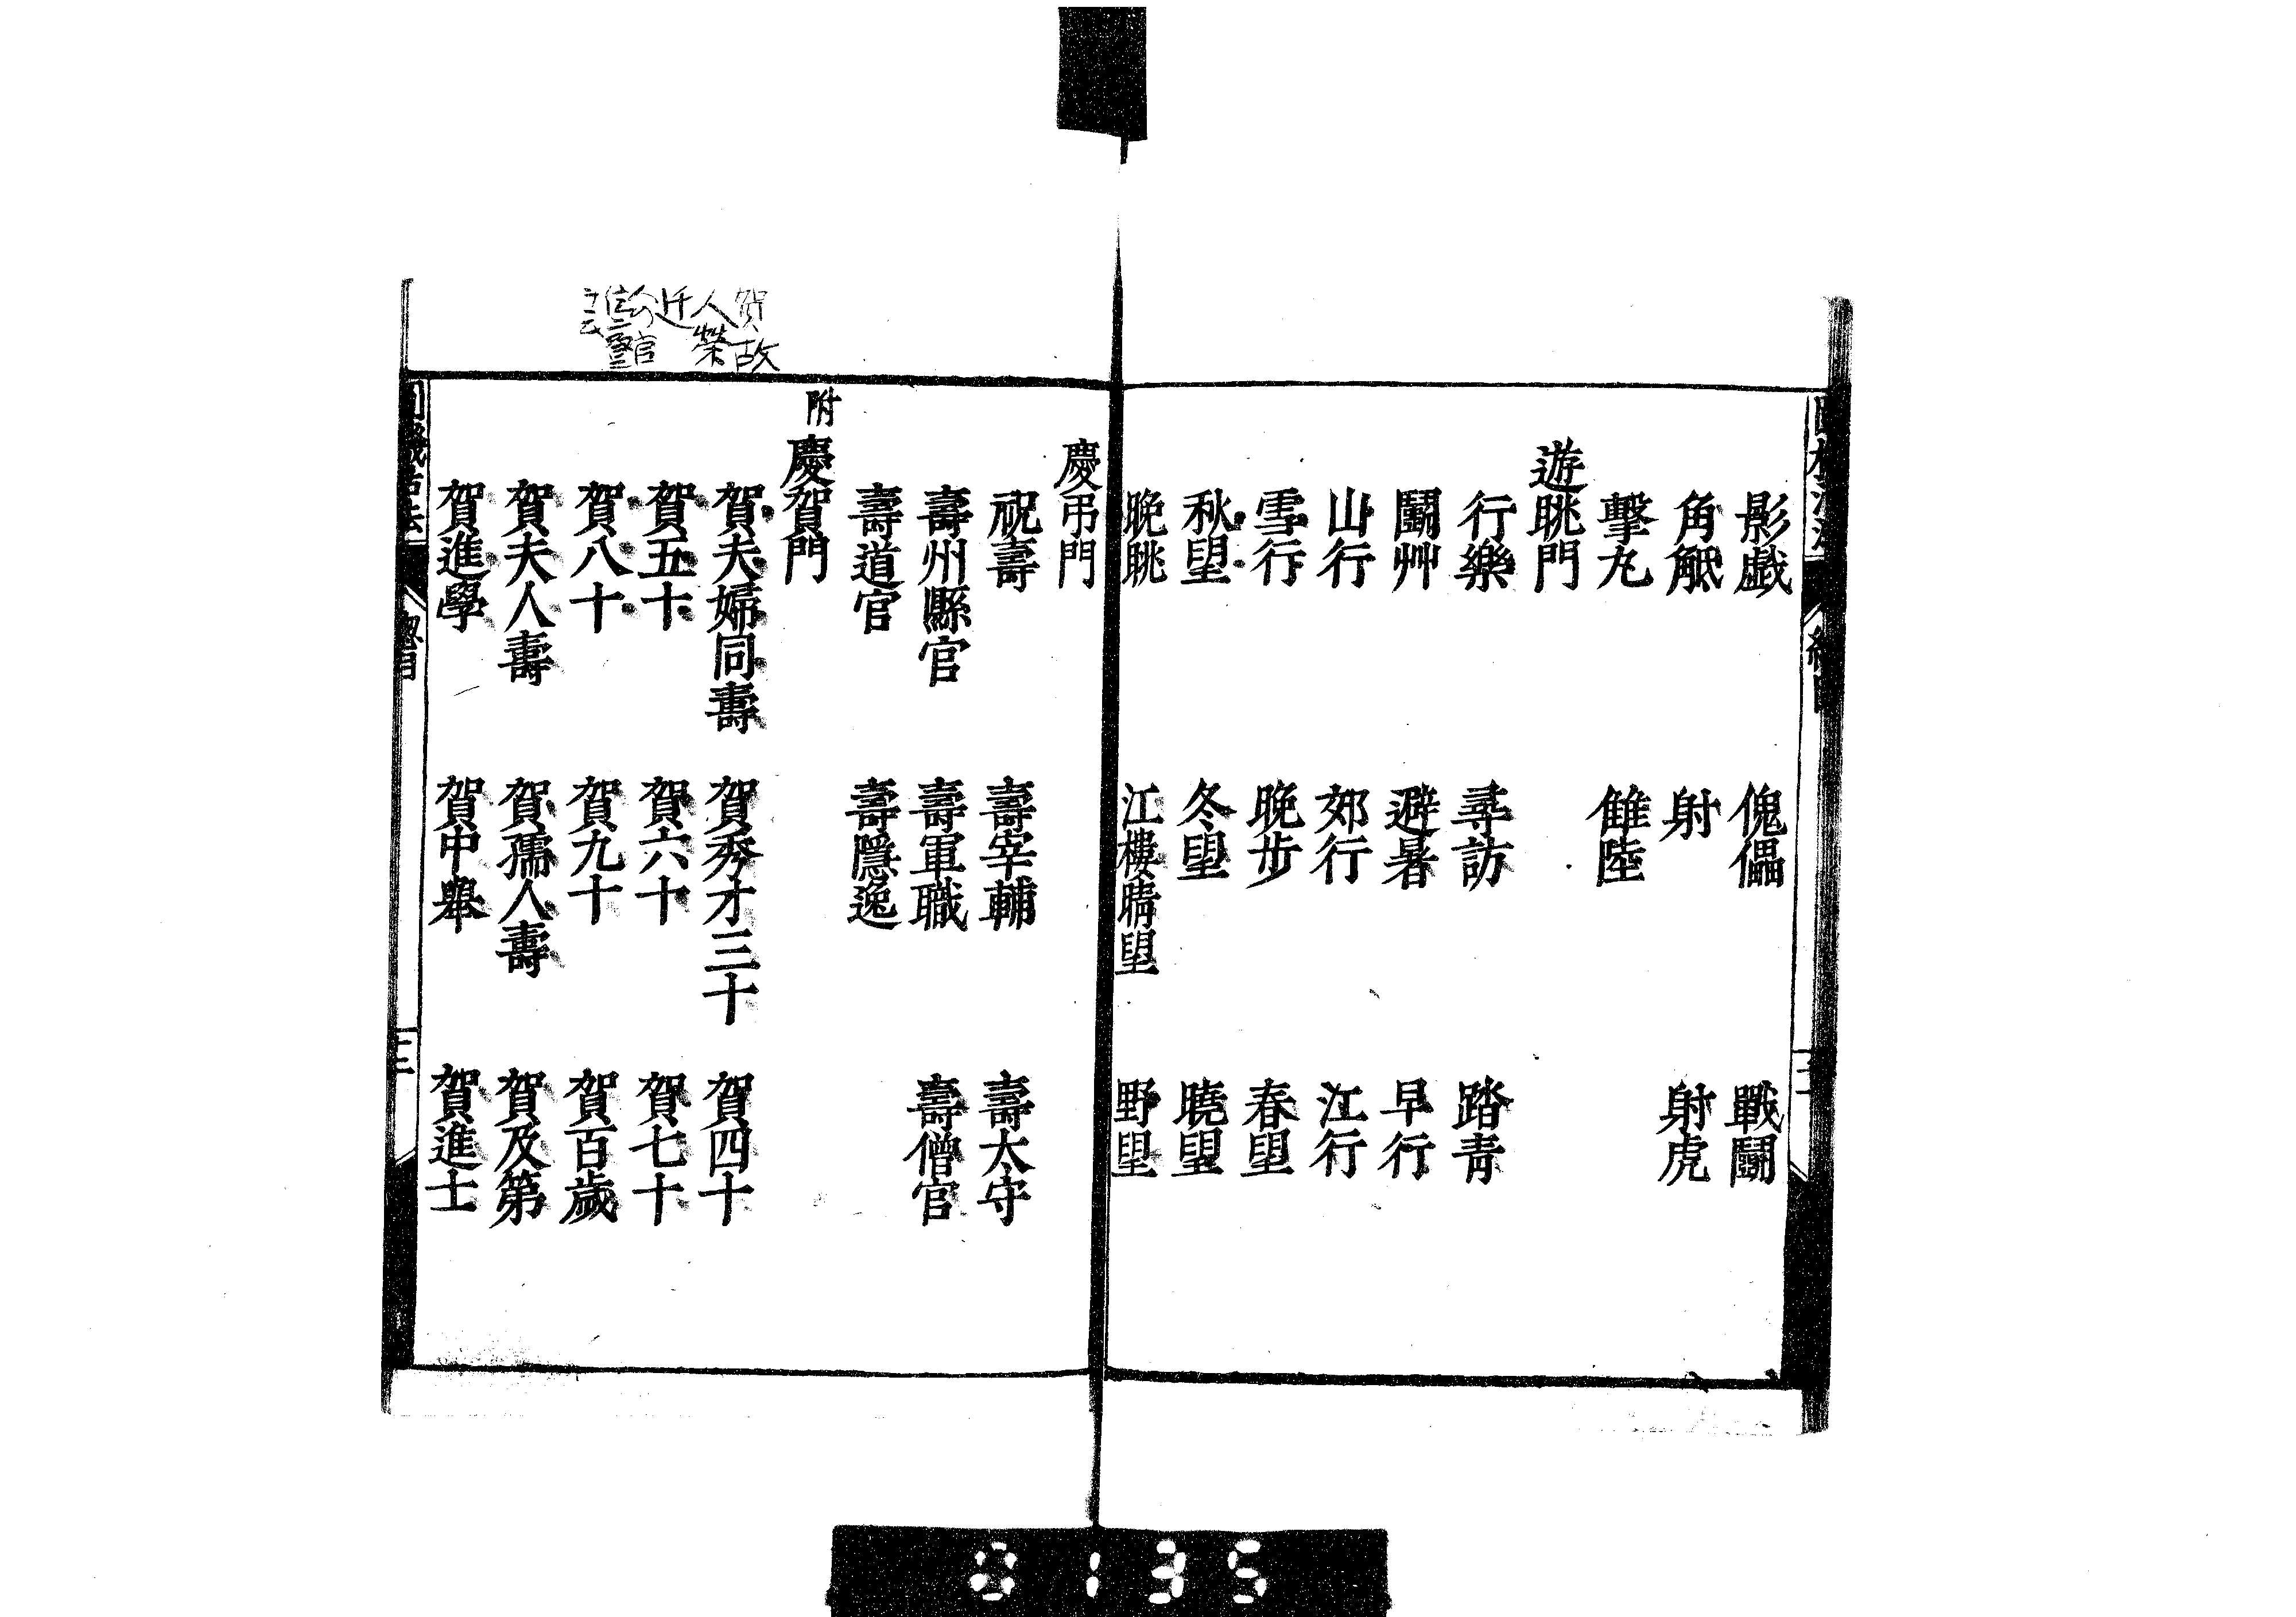 影戲 傀儡 戰鬭
角觝 射 射虎
擊丸 雠陸
遊眺門
行樂 尋訪 踏青
鬭艸 避暑 早行
山行 郊行 江行
雪行 晚步 春望
秋望 冬望 曉望
晚眺 江樓晴望 野望
慶弔門
祝壽 壽宰輔 壽太守
壽州縣官 壽軍職 壽僧官
壽道官 壽隱逸
附慶賀門
賀夫婦同壽 賀秀才三十 賀四十
賀五十 賀六十 賀七十
賀八十 賀九十 賀百歲
賀夫人壽 賀孺人壽 賀及第
賀進學 賀中舉 賀進士
總目
賀故
人榮
迁
0135